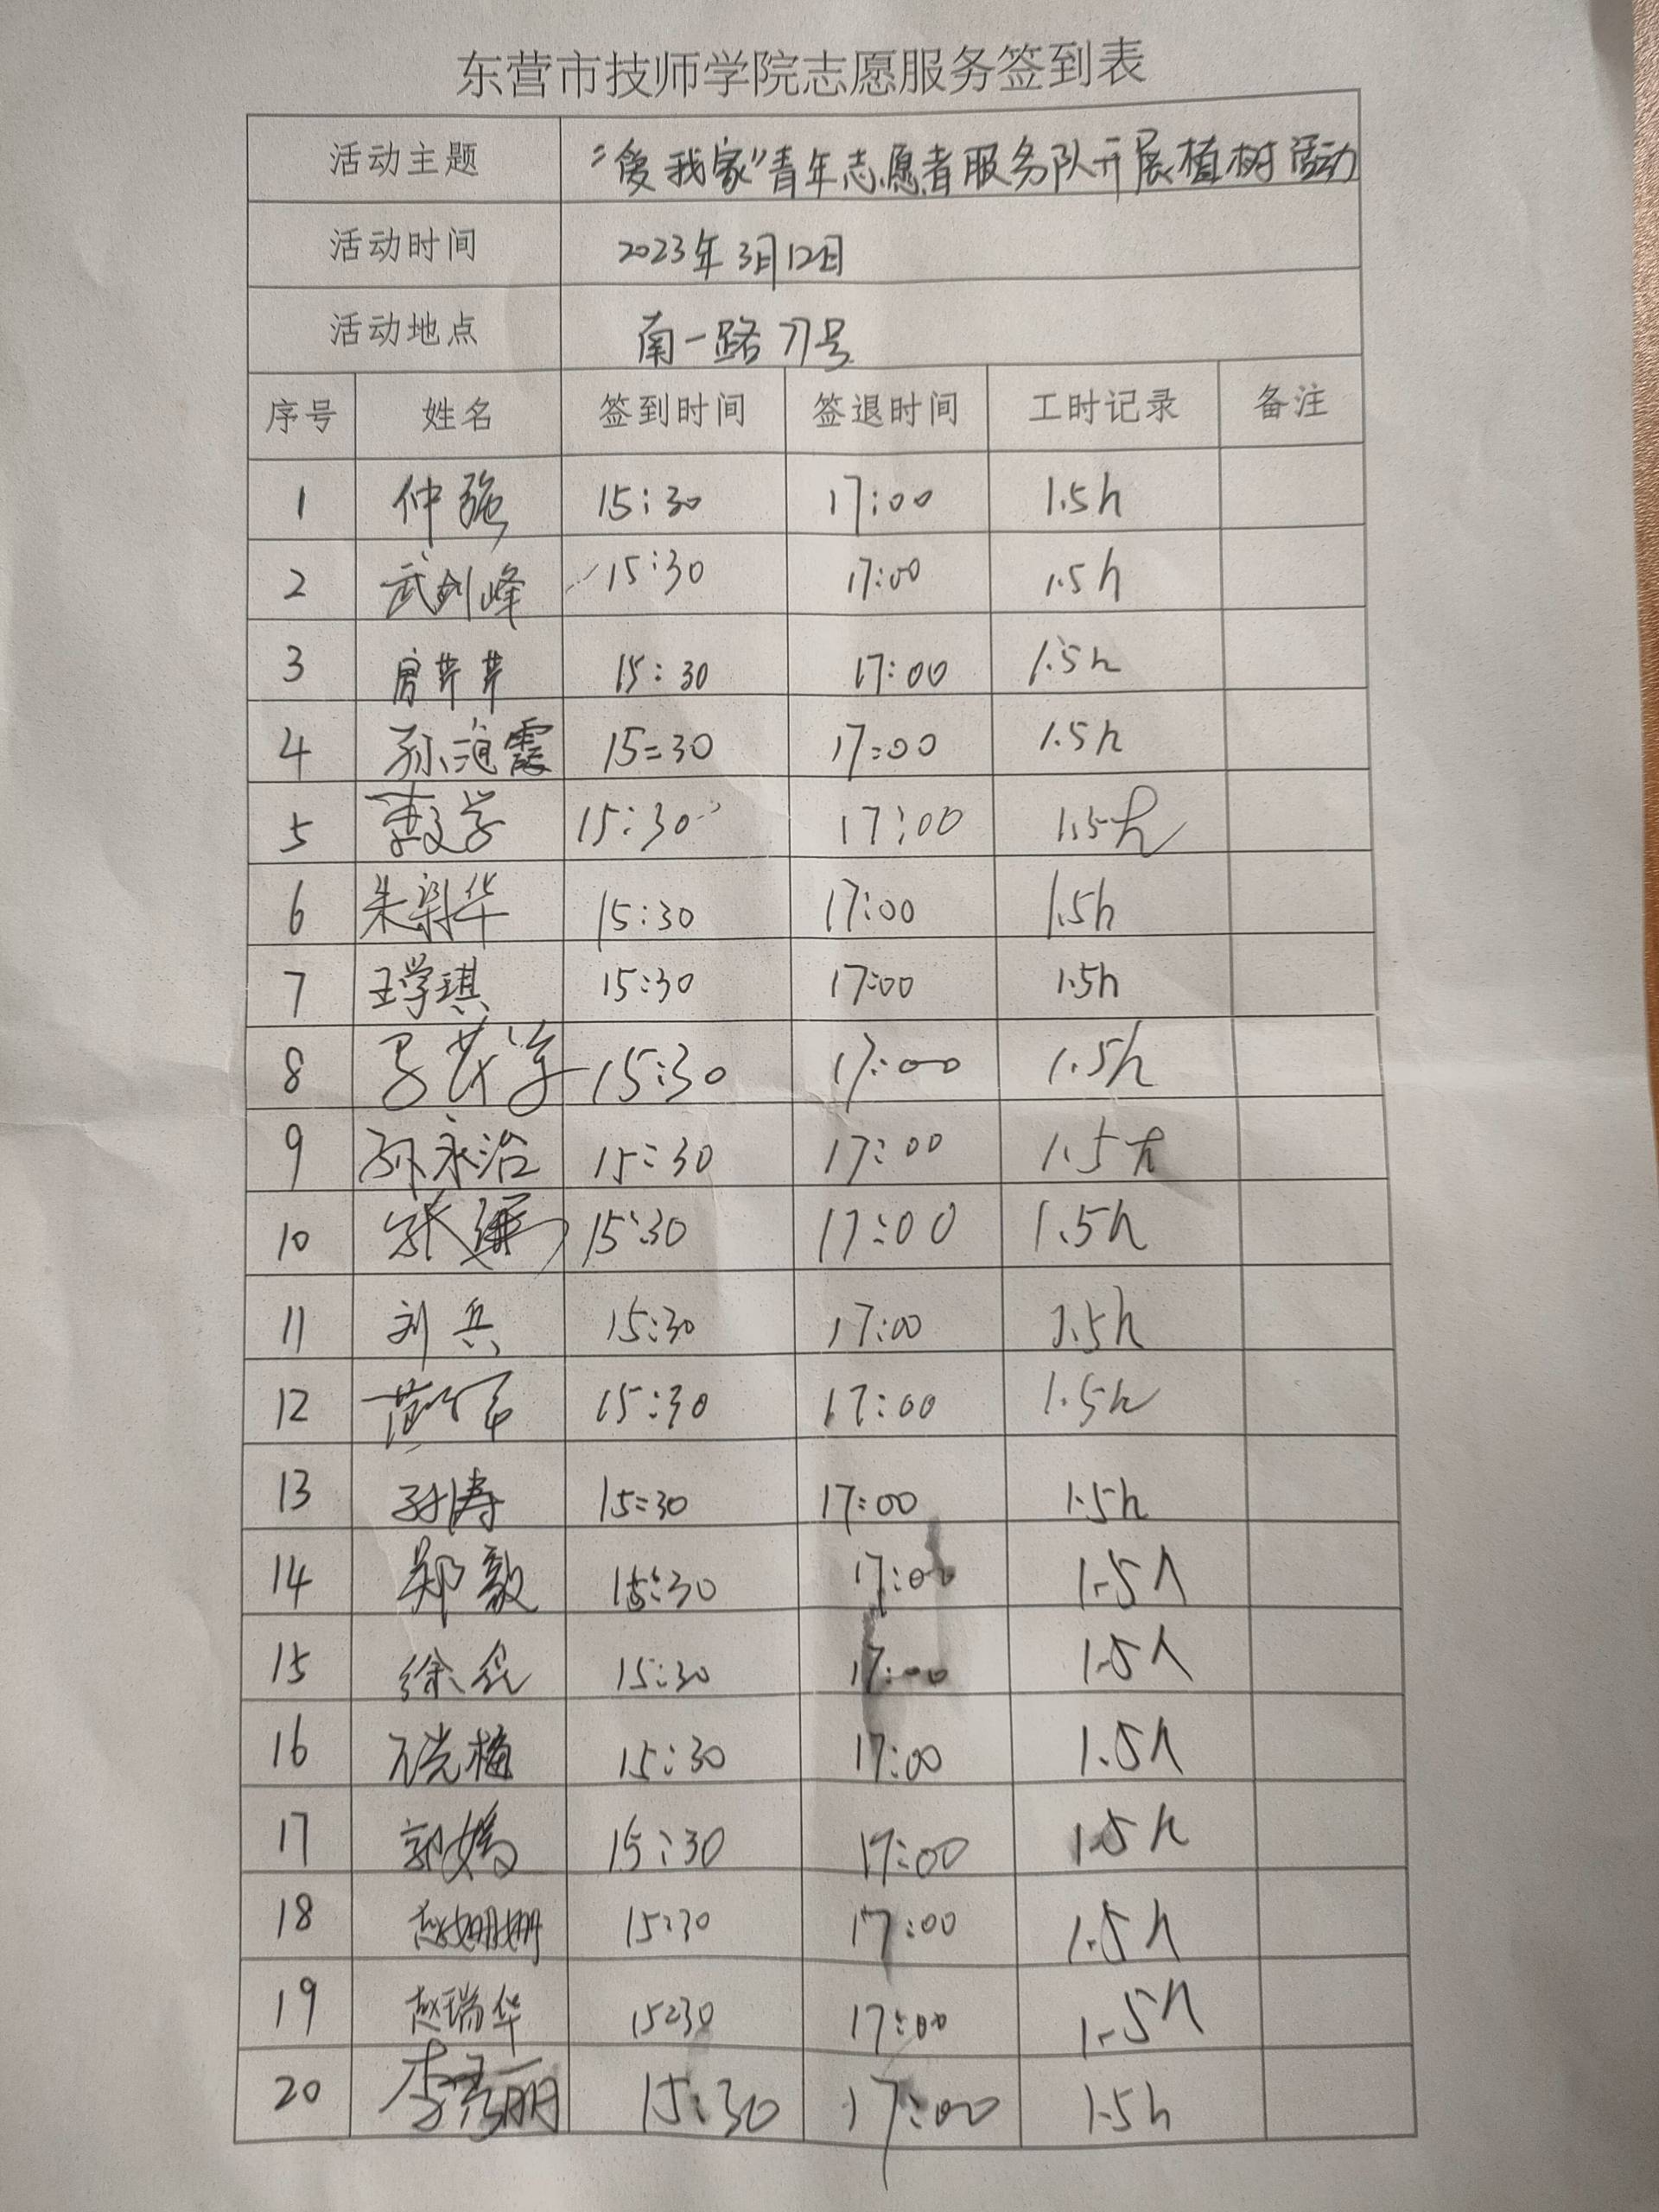 东营市技师学院志愿服务签到表
活动主题 “爱我家”青年志愿者服务队开展植树活动
活动时间 2023年3月12日
活动地点 南一路 号
序号 姓名 签到时间 签退时间 工时记录 备注
1 仲强 15:30 17:00 1.5h
2 武剑峰 15:30 17:00 1.5h
3 房芹芹 15:30 17:00 1.5h
4 孙 霞 15:30 17:00 1.5h
5 15:30 17:00 1.5h
6 朱 华 15:30 17:00 1.5h
7 王学琪 15:30 17:00 1.5h
8 15:30 17:00 1.5h
9 孙永治 15:30 17:00 1.5h
10 张 15:30 17:00 1.5h
11 刘兵 15:30 17:00 1.5h
12 15:30 17:00 1.5h
13 孙涛 15:30 17:00 1.5h
14 郑毅 15:30 17:00 1.5h
15 徐 15:30 17:00 1.5h
16 15:30 17:00 1.5h
17 郭嫣 15:30 17:00 1.5h
18 赵姗姗 15:30 17:00 1.5h
19 赵瑞华 15:30 17:00 1.5h
20 李秀丽 15:30 17:00 1.5h